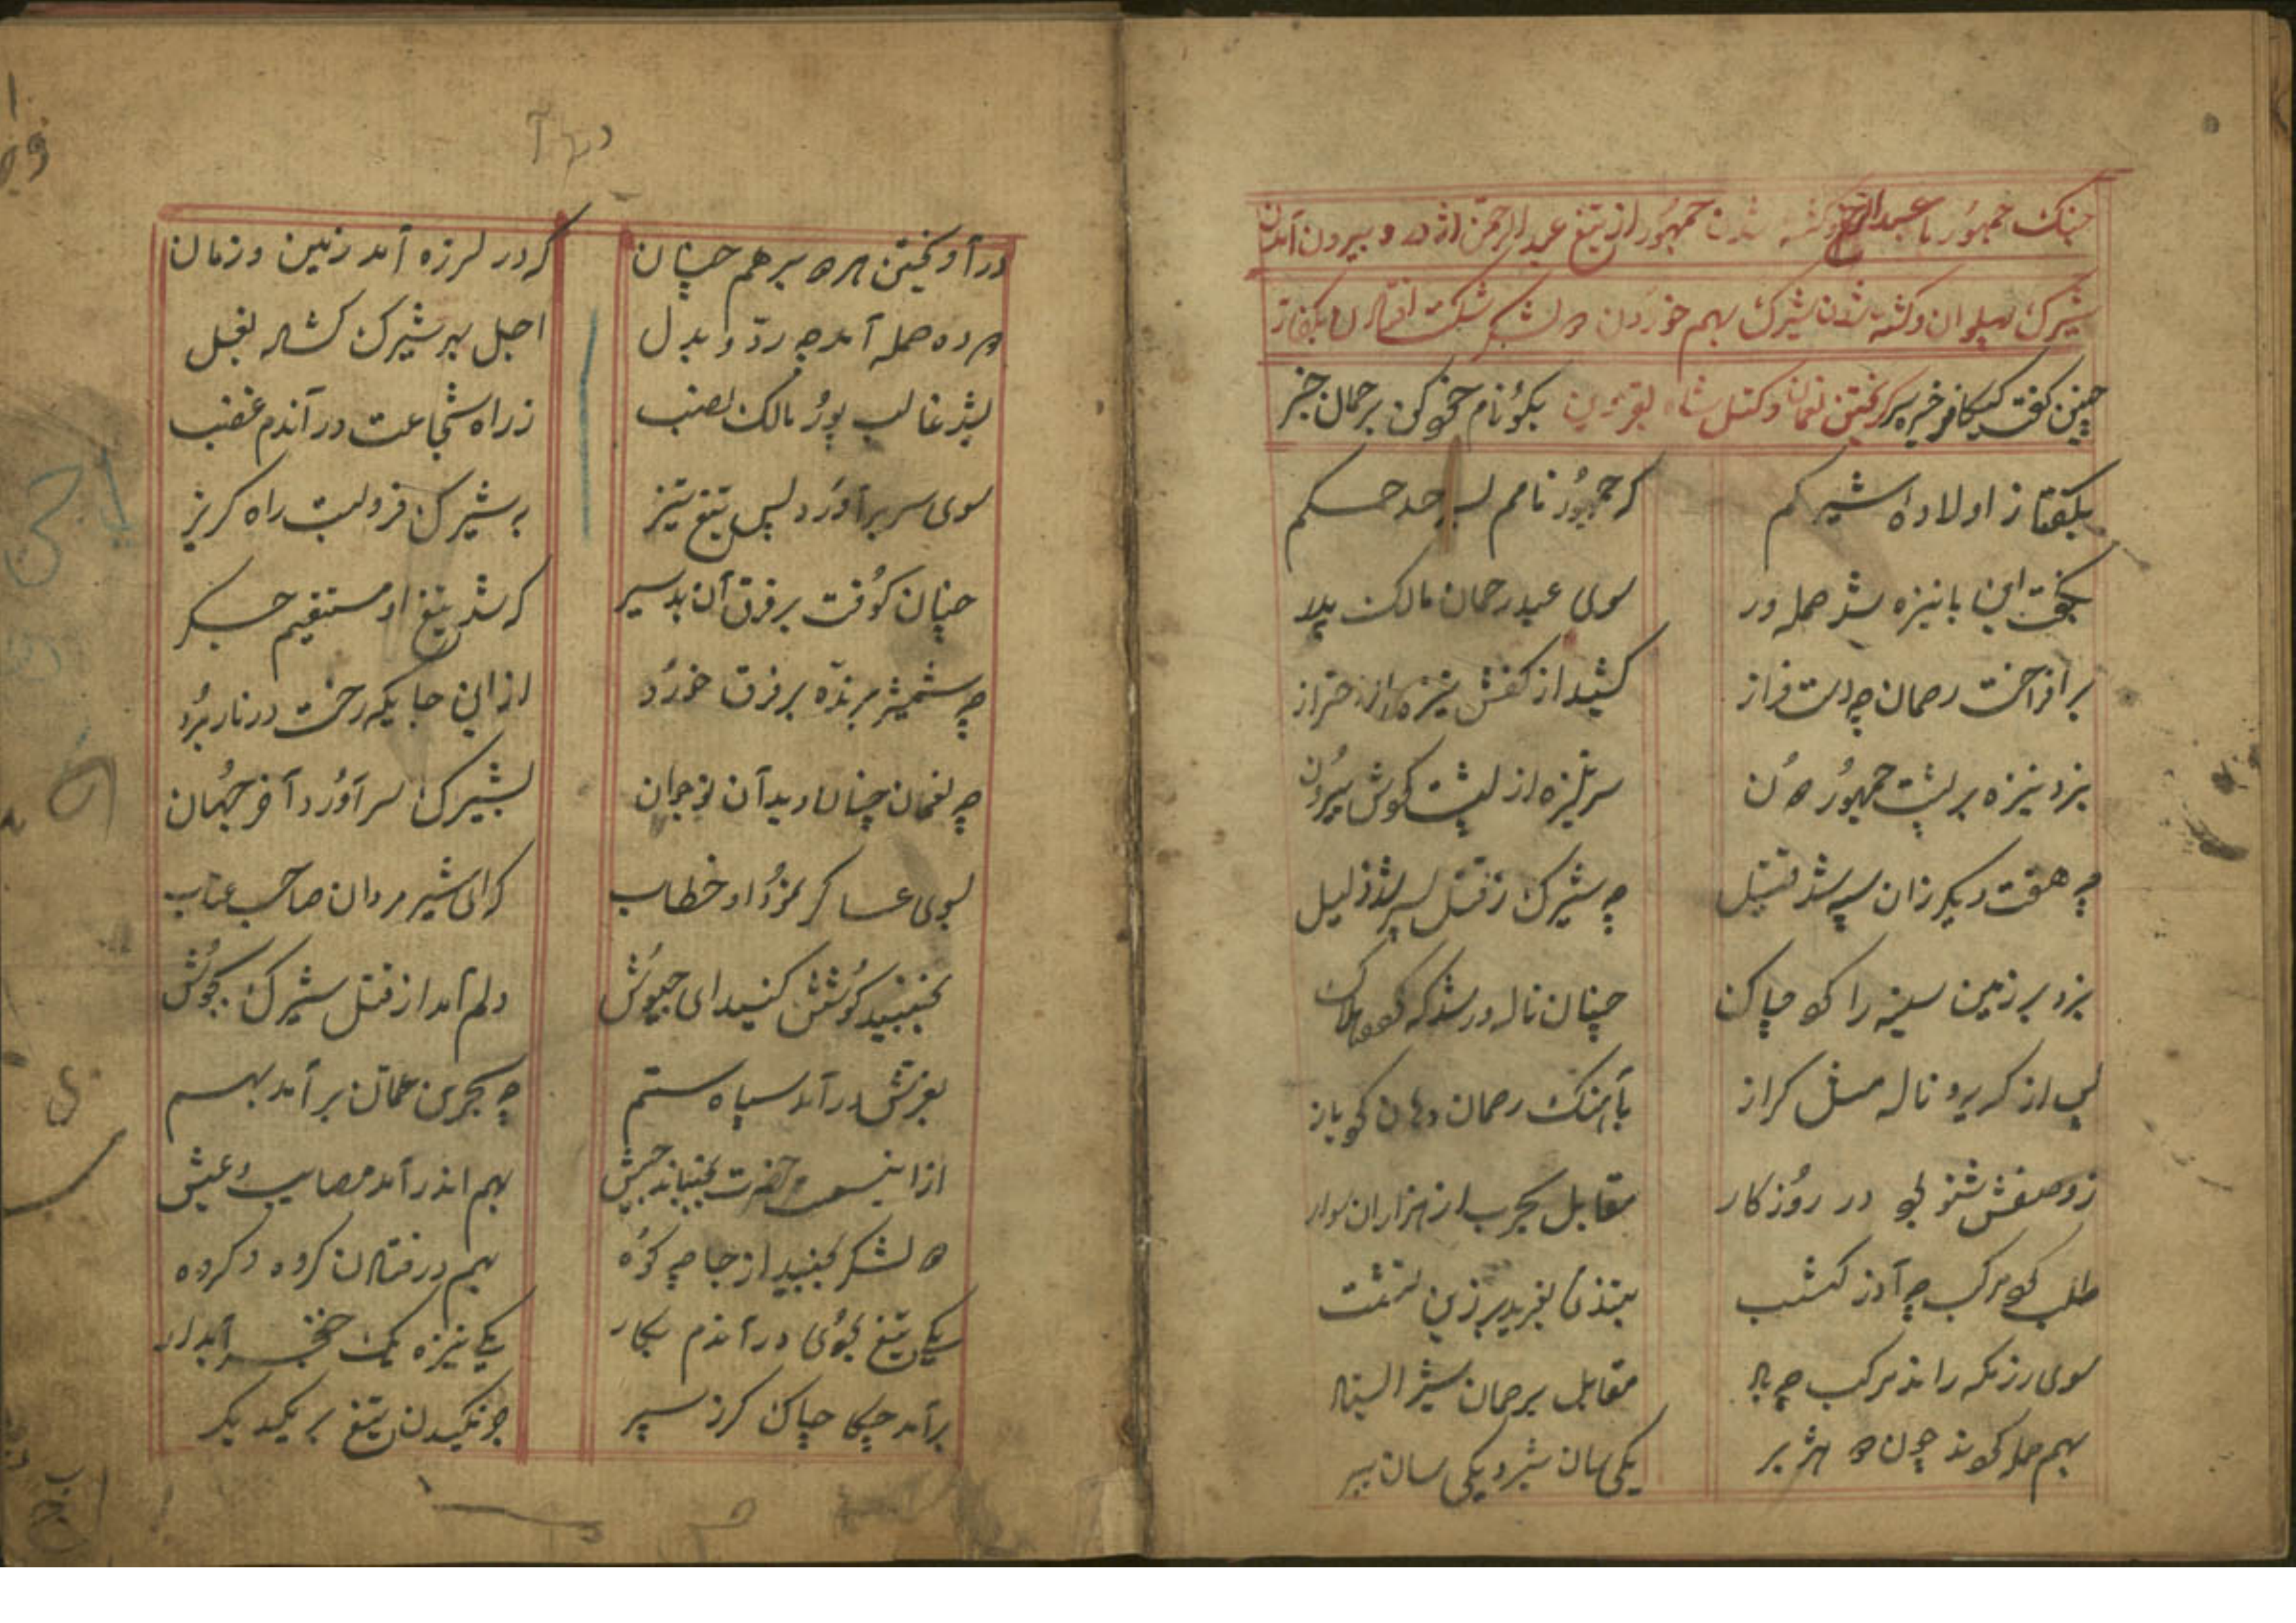 جنک جمهور با عبدالرحمن و کشته شدن جمهور از تیغ عبدالرحمن اژدر و بیرون آمدن
شیرک پهلوان و کشته شدن شیرک بهم خوردن دو لشکر شکست افتادن
چنین گفت کافر خیره سر کریختن نعمان و کتل شاه بکو نام خود کن برحمان خبر
بکفتا ز اولاده شیرکم که جمهور نامم بسرحد حکم
بکفت این با نیزه شد حمله ور سوی عبدرحمان مالک پدر
برافراخت رحمان چه دست فراز کشید از کفش نیزه را از
بزد نیزه بر پشت جمهور دون سر نیزه از پشت کوش بیرون
چه هفت دیکر زان سپه شد قتیل چه شیرک ز قتل پسر شد ذلیل
بزد بر زمین سینه را کرد چاک چنان ناله ور شد که
پس از کریه و ناله مثل کراز بآهنک رحمان دهان کرد باز
ز وصفش شنو در روزکار مقابل بحرب از هزاران سوار
طلب کرد مرکب چه آذر کشب بتندی بغرید بر زین نشست
سوی رزمکه راند مرکب چه باد مقابل برحمان شیر ایستاد
بهم حمله کردند چون دو هژبر یکی سان شیر و یکی سان ببر
درآویختن هر دو برهم چنان که در لرزه آمد زمین و زمان
دو ده حمله آمد چه رد و بدل اجل بهر شیرک کشاد بغل
بشد غالب پور مالک نصب ز راه شجاعت درآندم غضب
سوی سر برآورد پس تیغ تیز به شیرک فرو بست راه کریز
چنان کوفت بر فرق آن بدسیر که شد تیغ او مستقیم جکر
چه شمشیر برنده بر فرق خورد از این جایکه رخت در نار برد
چه نعمان چنان دید آن نوجوان بشیرک سر آورد آخر جهان
بسوی عساکر نمود او خطاب که ای شیر مردان صاحب عتاب
بجنبید کوشش کنید ای جیوش دلم آمد از قتل شیرک بجوش
بغرش درآمد سپاه ستم چه بحرین عمان برآمد بهم
از اینسمت حضرت بجنباند جیش بهم اندر آمد مصایب عیش
دو لشکر بجنبید از جا چه کوه بهم درفتادن کروه و کروه
یکی تیغ جوی درآندم بکار یکی نیزه یک خنجر آبدار
برآمد چکا چاک کرز سپر تیغ بر یکدیکر